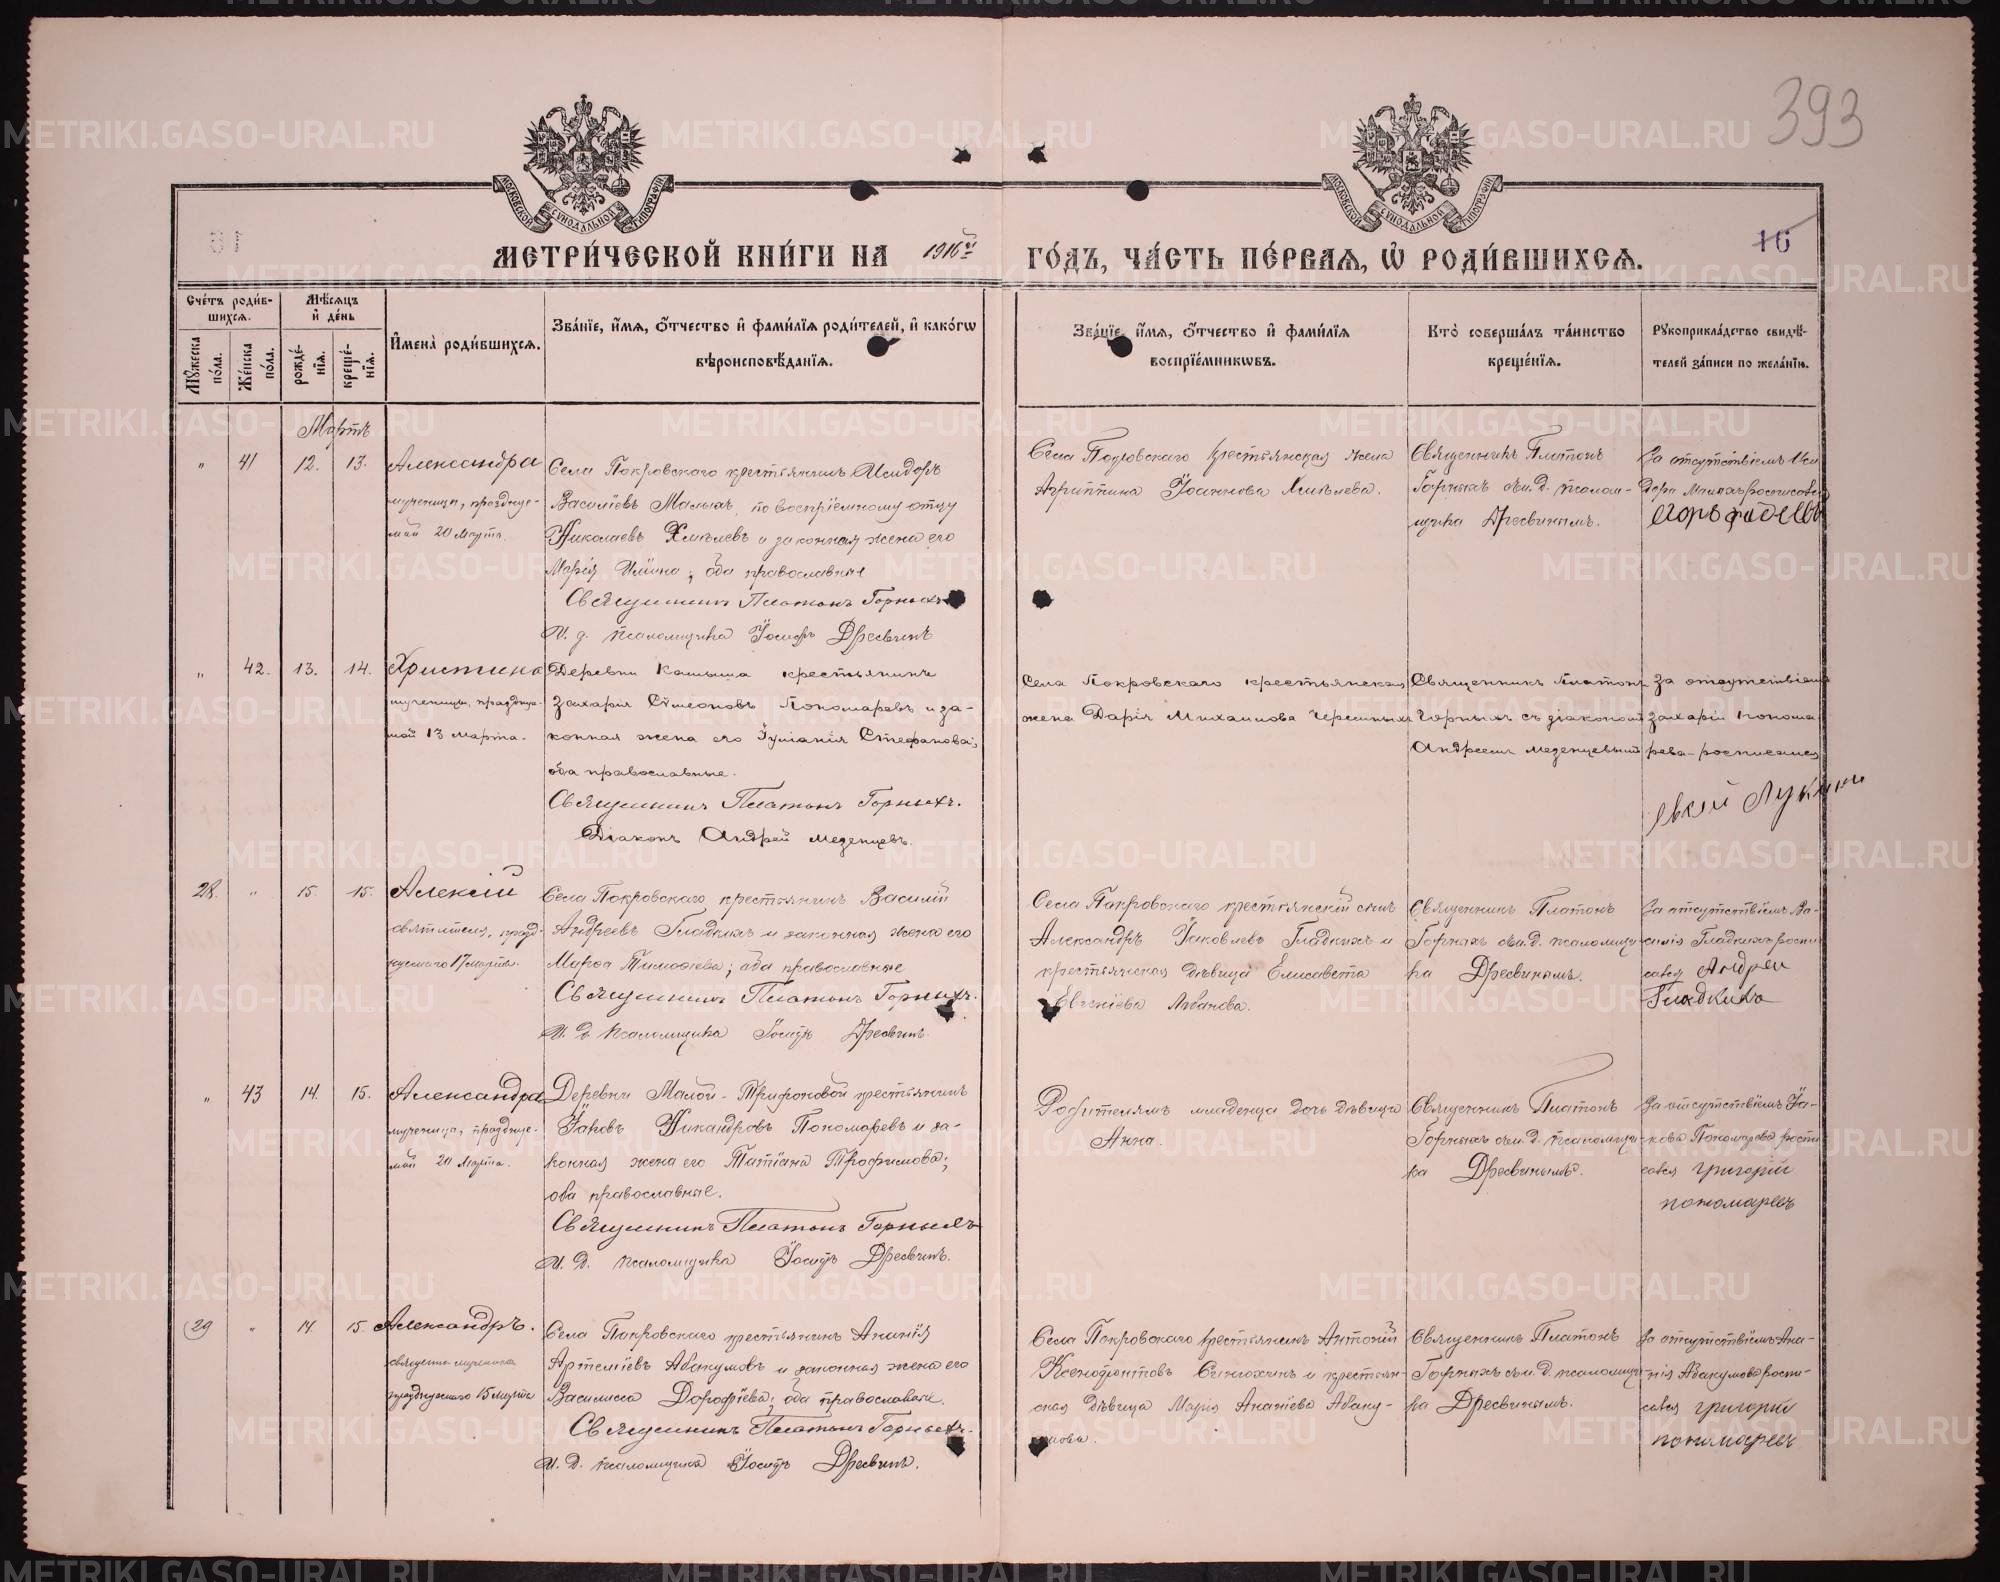 393
16
МЕТРИ́ЧЕСКОЙ КНИ́ГИ НА 1916й ГО́ДЪ, ЧА́СТЬ ПЕ́РВАЯ, Ѡ РОДИ́ВШИХСЯ.
Сче́тъ роди́в-
шихся.
Мѣ́сяцъ
и҆ де́нь
Му́жеска
по́ла.
Же́нска
по́ла.
рожде́-
нїя.
креще́-
нїя.
И҆мена̀ роди́вшихся.
Зва́нїе, и҆́мя, ѻ҆́тчество и҆ фами́лїя роди́телей, и҆ како́гѡ
вѣроисповѣ́данїя.
Зва́нїе, и҆́мя, ѻ҆́тчество и҆ фами́лїя
воспрїе́мникѡвъ.
Кто̀ соверша́лъ та́инство
креще́нїя.
Рꙋкоприкла́дство свидѣ́-
телей за́писи по жела́нїю.
Мартъ
" 41 12. 13.
Александра
мученица, празднуе-
мой 20 Марта.
Села Покровскаго крестьянинъ Исидоръ
Василіевъ Малыхъ, по воспріемному отцу
Николаевъ Хмѣлевъ и законная жена его
Марія Ильина; оба православные
Священникъ Платонъ Горныхъ
И. д. псаломщика Іосифъ Дресвинъ
Села Покровскаго крестьянская жена
Агриппина Іоаннова Хмѣлева.
Священникъ Платонъ
Горныхъ съ и. д. псалом-
щика Дресвинымъ.
За отсутствіемъ Иси
дора Малыхъ росписался
" 42. 13. 14.
Христина
мученицы, празднуе-
мой 13 Марта.
Деревни крестьянинъ
Захарія Сѵмеоновъ Пономаревъ и за-
конная жена его Іуліанія Стефанова;
оба православные.
Священникъ Платонъ Горныхъ.
Діаконъ Андрей Меденцевъ.
Села Покровскаго крестьянская
жена Дарія Михаилова Черемныхъ
Священникъ Платонъ
Горныхъ съ діакономъ
Андреемъ Меденцевымъ
За отсутствіемъ
Захаріи Понома
рева росписался
Лукин
28. " 15. 15.
Алексій
святителя, празд-
нуемаго 17 Марта.
Села Покровскаго крестьянинъ Василій
Андреевъ Гладкихъ и законная жена его
Марѳа Тимоѳіева; оба православные
Священникъ Платонъ Горныхъ.
И. д. псаломщика Іосифъ Дресвинъ.
Села Покровскаго крестьянскій сынъ
Александръ Іаковлевъ Гладкихъ и
крестьянская дѣвица Елисавета
Евгеніева
Священникъ Платонъ
Горныхъ съ и. д. псаломщи-
ка Дресвинымъ.
За отсутствіемъ Ва-
силія Гладкихъ роспи
сался Андреи
Гладкихъ
" 43 14. 15.
Александра
мученица, празднуе-
мой 20 Марта.
Деревни Малой-Трифоновой крестьянинъ
Іаковъ Никандровъ Пономаревъ и за-
конная жена его Татіана Трофимова;
оба православные.
Священникъ Платонъ Горныхъ
И. д. псаломщика Іосифъ Дресвинъ.
Родителямъ младенца дочь дѣвица
Анна.
Священникъ Платонъ
Горныхъ съ и. д. псаломщи-
ка Дресвинымъ.
За отсутствіемъ Іа-
кова Пономарева роспи
сался григорій
пономаревъ
29 " 14. 15.
Александръ.
священномученика
празднуемаго 15 Марта
Села Покровскаго крестьянинъ Ананія
Артеміевъ Абакумовъ и законная жена его
Василисса Дорофіева; оба православные.
Священникъ Платонъ Горныхъ.
И. д. псаломщика Іосифъ Дресвинъ.
Села Покровскаго крестьянинъ Антоній
Ксенофонтовъ и крестьян-
ская дѣвица Марія Ананіева Абаку-
мова.
Священникъ Платонъ
Горныхъ съ и. д. псаломщи
ка Дресвинымъ.
За отсутствіемъ Ана-
нія Абакумова роспи-
сался григорій
пономаревъ
METRIKI.GASO-URAL.RU